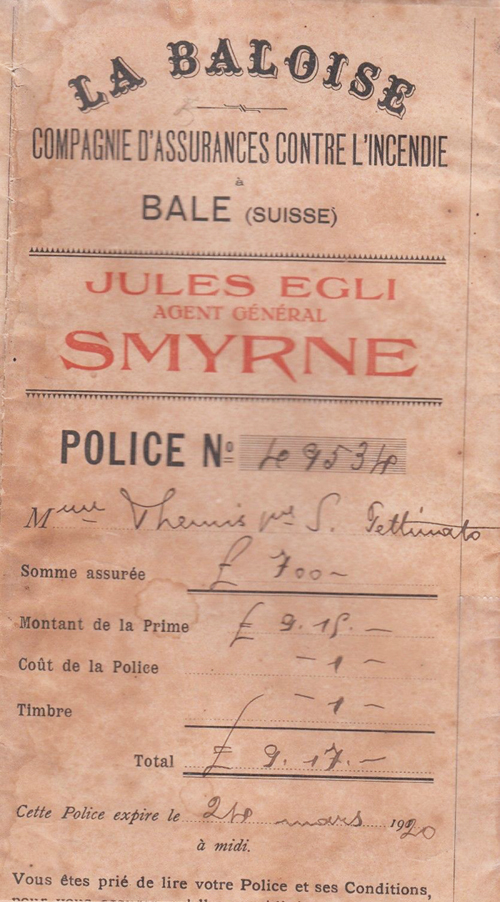 LA BALOISE
COMPAGNIE D'ASSURANCES CONTRE L'INCENDIE
à
BALE (SUISSE)
JULES EGLI
AGENT GÉNÉRAL
SMYRNE
POLICE Nº 49534
Mme Themis S. Pettinato
Somme assurée £ 700 –
Montant de la Prime £ 9.15. –
Coût de la Police – 1 –
Timbre – 1 –
Total £ 9.17. –
Cette Police expire le 24 mars 1920
à midi.
Vous êtes prié de lire votre Police et ses Conditions,